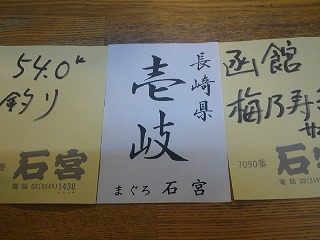 54.0k
釣り
番
石宮
電話 03(3545)1438
長崎県
壱岐
まぐろ 石宮
函館
梅乃寿
7090番
石宮
電話 03(3545)